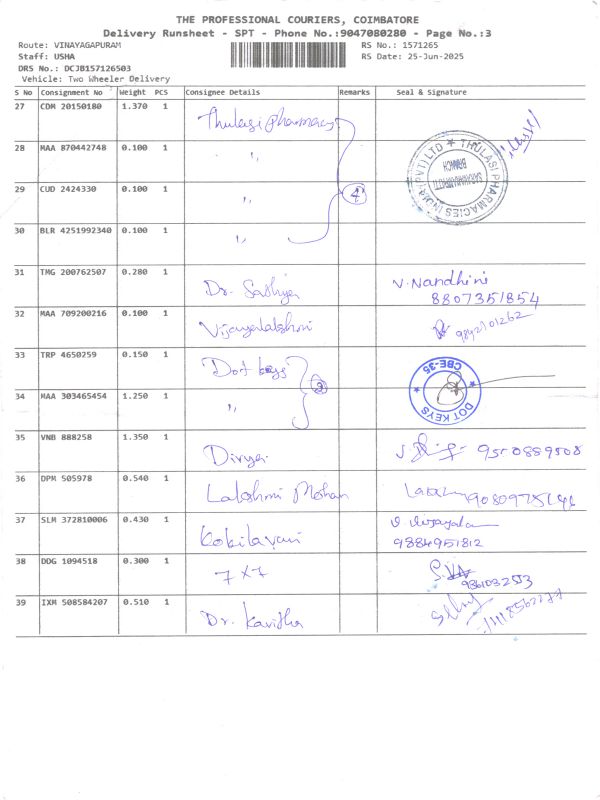 THE PROFESSIONAL COURIERS, COIMBATORE
Delivery Runsheet - SPT - Phone No.:9047080280 - Page No.:3
Route: VINAYAGAPURAM
RS No.: 1571265
Staff: USHA
RS Date: 25-Jun-2025
DRS No.: DCJB157126503
Vehicle: Two Wheeler Delivery
S No Consignment No Weight PCS Consignee Details Remarks Seal & Signature
27 CDM 20150180 1.370 1 Thulasi pharmacy
28 MAA 870442748 0.100 1 "
THULASI PHARMACIES INDIA (PVT) LTD
BRANCH
29 CUD 2424330 0.100 1 " 4
30 BLR 4251992340 0.100 1 "
31 TMG 200762507 0.280 1 Dr. Sathya V. Nandhini
8807351854
32 MAA 709200216 0.100 1 Vijayalakshmi 9842101262
33 TRP 4650259 0.150 1 Dot keys
CBE-35
DOT KEYS
34 MAA 303465454 1.250 1 "
35 VNB 888258 1.350 1 Divya
36 DPM 505978 0.540 1 Lakshmi Mohan
37 SLM 372810006 0.430 1 Kokilavani
9884951812
38 DDG 1094518 0.300 1 7x7
39 IXM 508584207 0.510 1 Dr. Kavitha